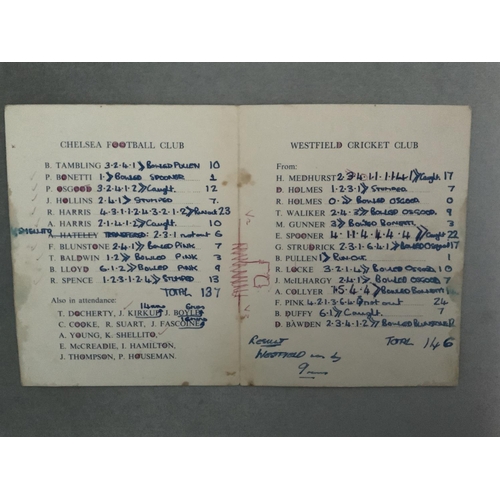 CHELSEA FOOTBALL CLUB
B. TAMBLING 3·2·4·1 》 BOWLED PULLEN 10
P. BONETTI 1·》 BOWLED SPOONER 1
P. OSGOOD 3·2·4·1·2 》 Caught. 12
J. HOLLINS 2·4·1 》 STUMPED 7
R. HARRIS 4·3·1·2·4·3·2·1·2 》 23
A. HARRIS 2·1·4·1·2 》 Caught. 10
SHELLITO
A. HATELEY 2·3·1 not out 6
F. BLUNSTONE 2·4·1 》 BOWLED PINK 7
T. BALDWIN 1·2 》 BOWLED PINK 3
B. LLOYD 6·1·2 》 BOWLED PINK 9
R. SPENCE 1·2·4·2·4 》 STUMPED 13
TOTAL 137
Also in attendance:
T. DOCHERTY, J. KIRKUP, J. BOYLE,
C. COOKE, R. SUART, J. FASCIONE,
A. YOUNG, K. SHELLITO,
E. McCREADIE, I. HAMILTON,
J. THOMPSON, P. HOUSEMAN.
WESTFIELD CRICKET CLUB
From:
H. MEDHURST Caught. 17
D. HOLMES 1·2·3·1 》 STUMPED 7
R. HOLMES 0·》 BOWLED OSGOOD 0
T. WALKER 2·4·3 》 BOWLED OSGOOD 9
M. GUNNER 3 》 BOWLED BONETTI 3
E. SPOONER 4·1·1·4·4·4·4 》 Caught 22
G. STRUDRICK 2·3·1·6·4·1 》 BOWLED OSGOOD 17
B. PULLEN 1 》 RUN OUT 1
R. LOCKE 3·2·1·4 》 BOWLED OSGOOD 10
J. McILHARGY 2·4·1 》 BOWLED OSGOOD 7
A. COLLYER BOWLED BONETTI
F. PINK 4·2·1·3·6·4·4 not out 24
B. DUFFY 6·1 》 Caught. 7
D. BAWDEN 2·3·4·1·2 》 BOWLED
TOTAL 146
RESULT
WESTFIELD won by
9